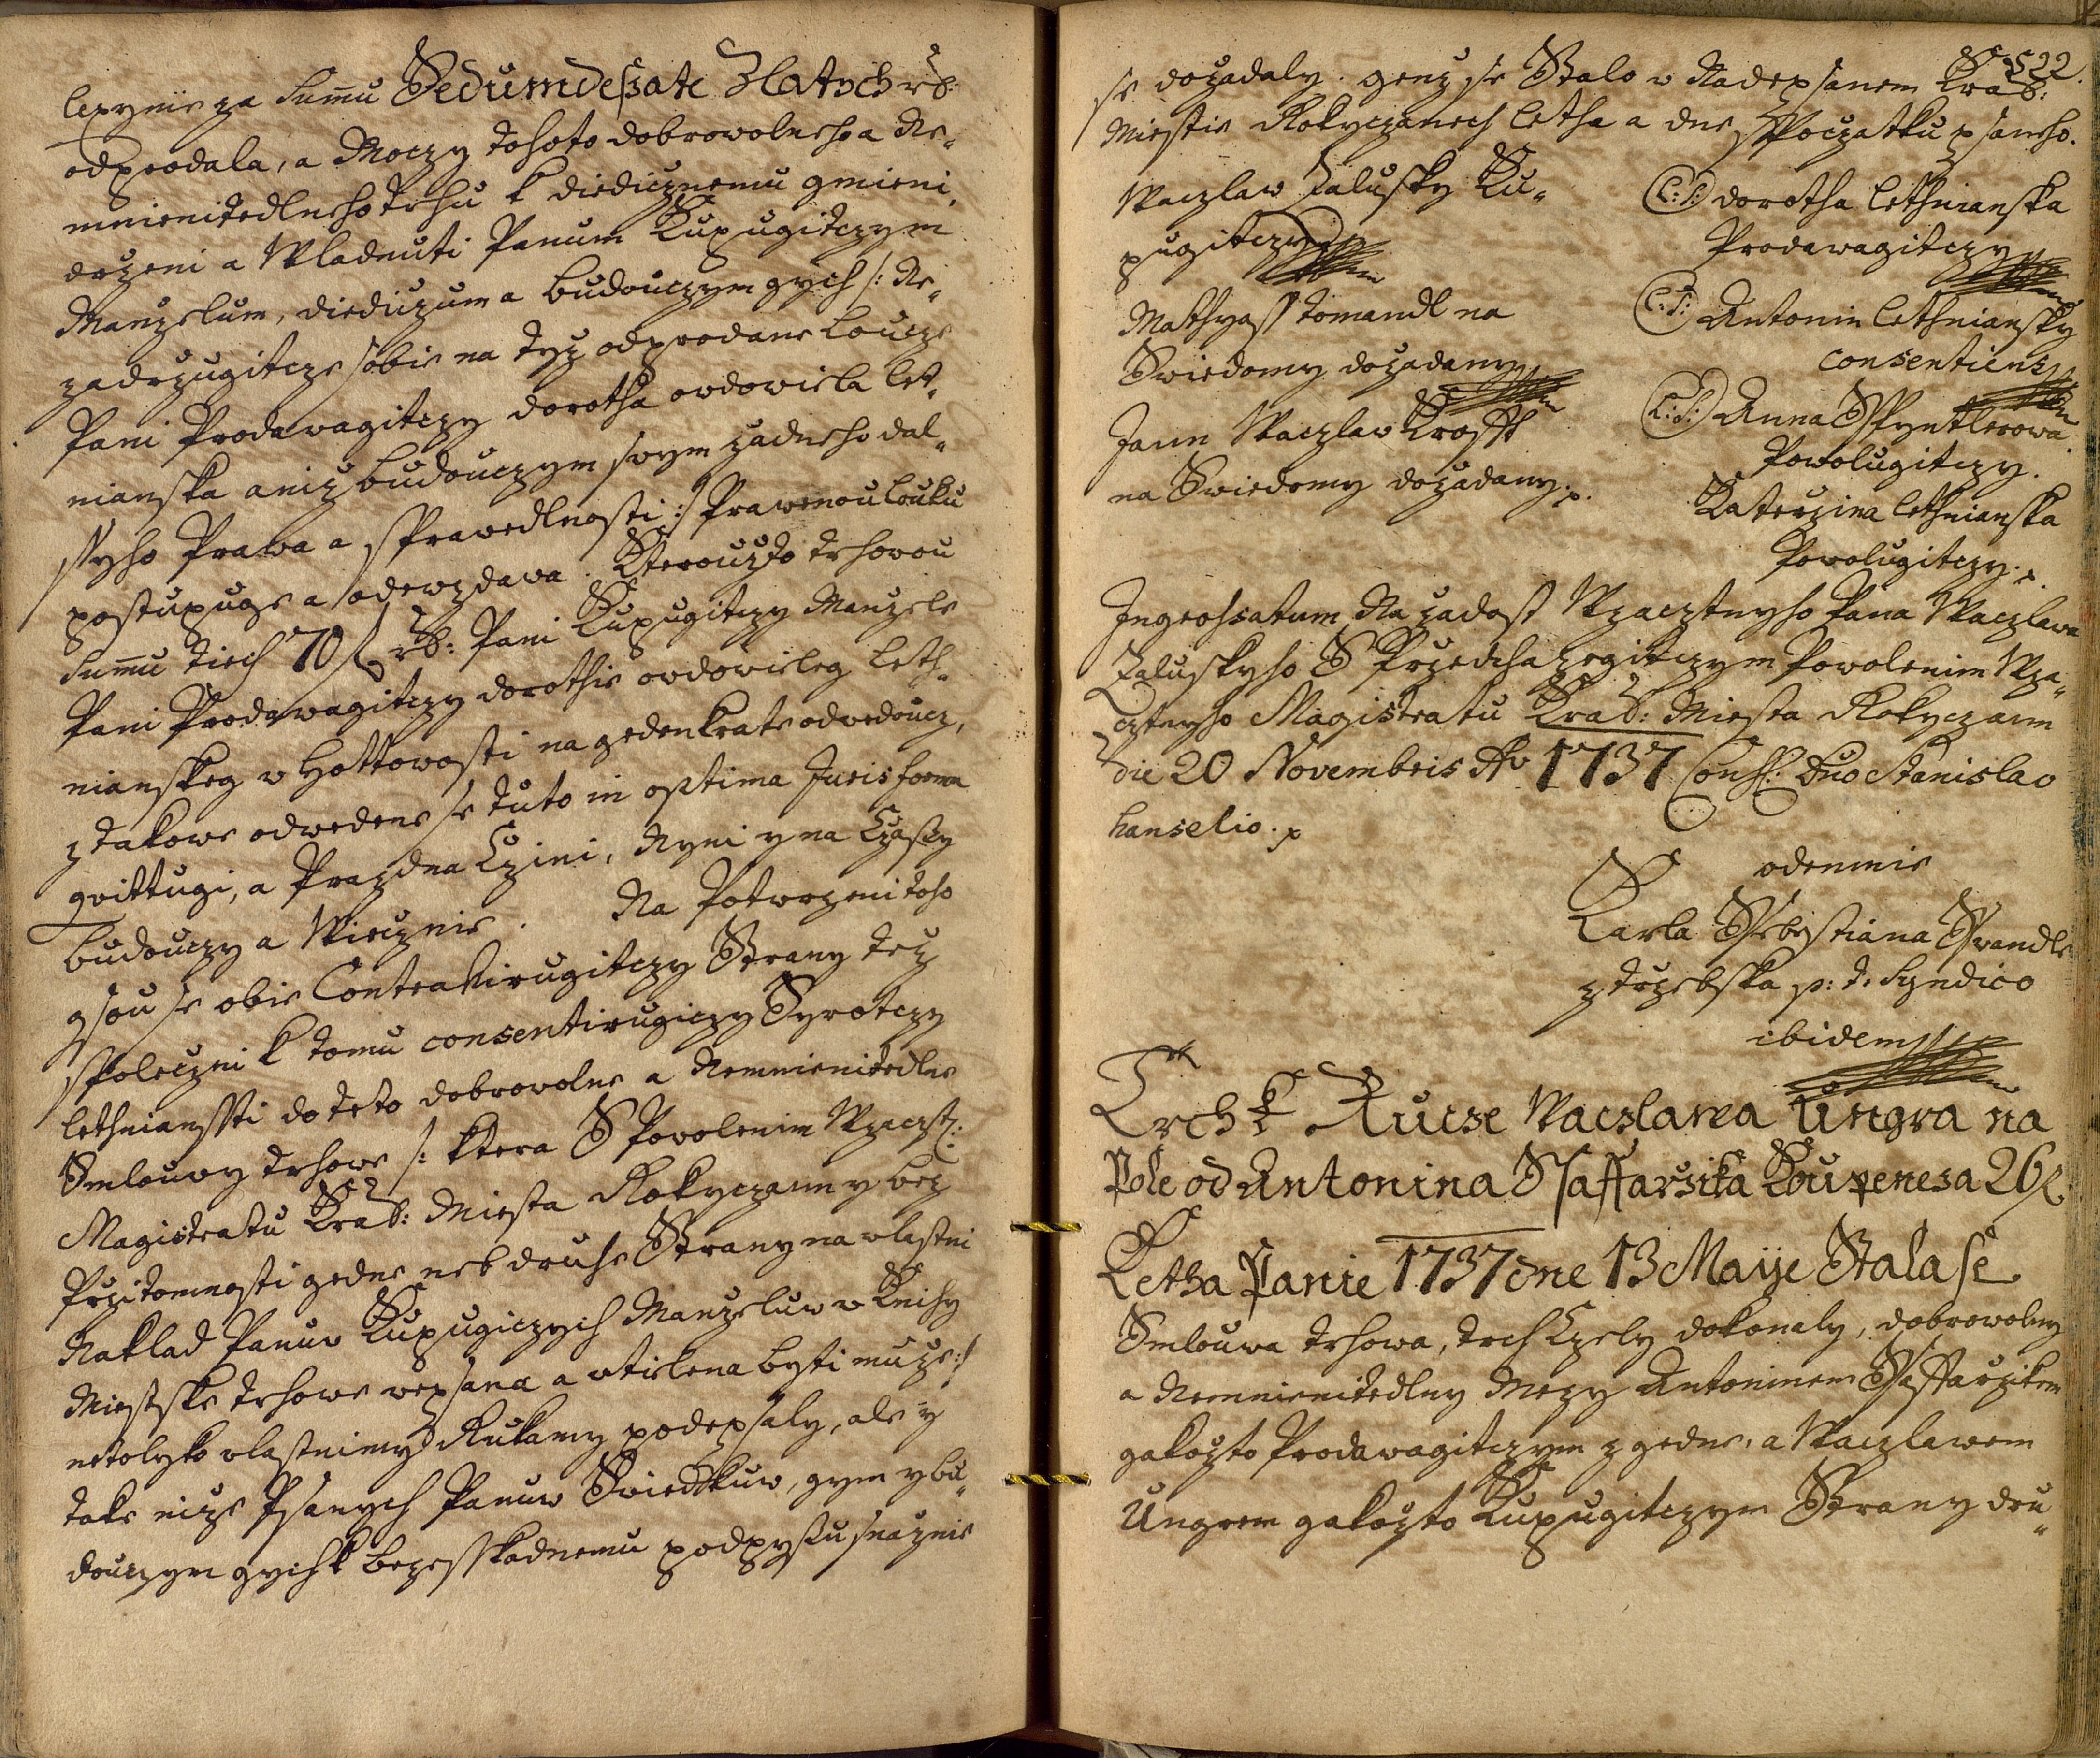 lepynie za Sumu Sedumdeszate Zlatych rß:
odprodala, a Moczy tohoto dobrowolneho a Ne„
mnienitedlneho trhu k diedicznemu gmieni,
drzeni a Wladnuti Panum Kupugitczym
Manzelum, diediczum a budouczym gych /: Ne„
zadrzugitcze sobie na tyz odprodane loucze
Pani Prodawagitczy dorotha owdowiela Let„
nianska aniz budouczym swym zadneho dal„
ssyho Prawa a sprawedlnosti :/ Prawenou louku
postupuge a odewzdawa. Kterouzto trhowou
Sumu tiech 70 f rß: Pani Kupugitczy Manzele
Pani Prodawagitczy dorothie owdowieleg Leth„
nianskeg w Hottowosti na gedenkrate odwedouc,
z takowe odwedene se tuto in optima Juris forma
qvittugi, a Prazdna Czini, Nyni y na Czasy
budouczy a Wiecznie. Na Potwrzeni toho
gsou se obie Contrahirugitczy Strany tez
spoleczni k tomu consentirugiczy Syrotczy
Lethiansstj do teto dobrowolne a Nemnienitedlne
Smlouwy trhowe /: ktera S Powolenim Wzaczt:
Magistratu Kral: Miesta Rokyczann y bez
Przitomnosti gedne neb druhe Strany na wlastni
Naklad Panuw Kupugiczych Manzeluw w Knihy
Miestske trhowe wepsana a wtielena byti muze :/
netolyko wlastnimy Rukamy podepsaly, ale y
take nize Psanych Panuw Swiedkuw, gym y bu„
douczym gych k bezesskodnemu podpysu snaznie
522.
se dozadaly. genz se Stalo w Nadepsanem Kral:
Miestie Rokyczanech Letha a dne Spoczatku psaneho.
Waczlaw Zalusky Ku„
pugitczy
Mathyass tomandl na
Swiedomy dozadany
Jann Waczlaw Krofft
na Swiedomy dozadany.
(L:S:) dorotha Lethnianska
Prodawagitczy
(L:S:) Antonin Lethniansky
consentiens
(L:S:) Anna Spyntlerowa
Powolugitczy.
Katerzina Lethnianska
Powolugitczy.
Ingrohsatum Na zadost Wzacztnyho Pana Waczlawa
Zaluskyho S Przedchazegitczym Powolenim Wza„
cztnyho Magistratu Kral: Miesta Rokyczann
die 20 Novembris Ao 1737 Cons: Dno Stanislao
hanselio.
odemnie
Karla Ssebestiana Sswandle
z trzebska p: t: Syndico
ibidem
Trch k Rucze Waczlawa Ungra na
Pole od Antonina Ssaffarzika Koupene za 26 f
Letha Panie 1737 dne 13 Maije Stala se
Smlouwa trhowa, trch Czely dokonaly, dobrowolny
a Nemnienitedlny Mezy Antoninem Ssaffarzikem
gakozto Prodawagitczym z gedne, a Waczlawem
Ungrem gakozto Kupugitczym Strany dru„